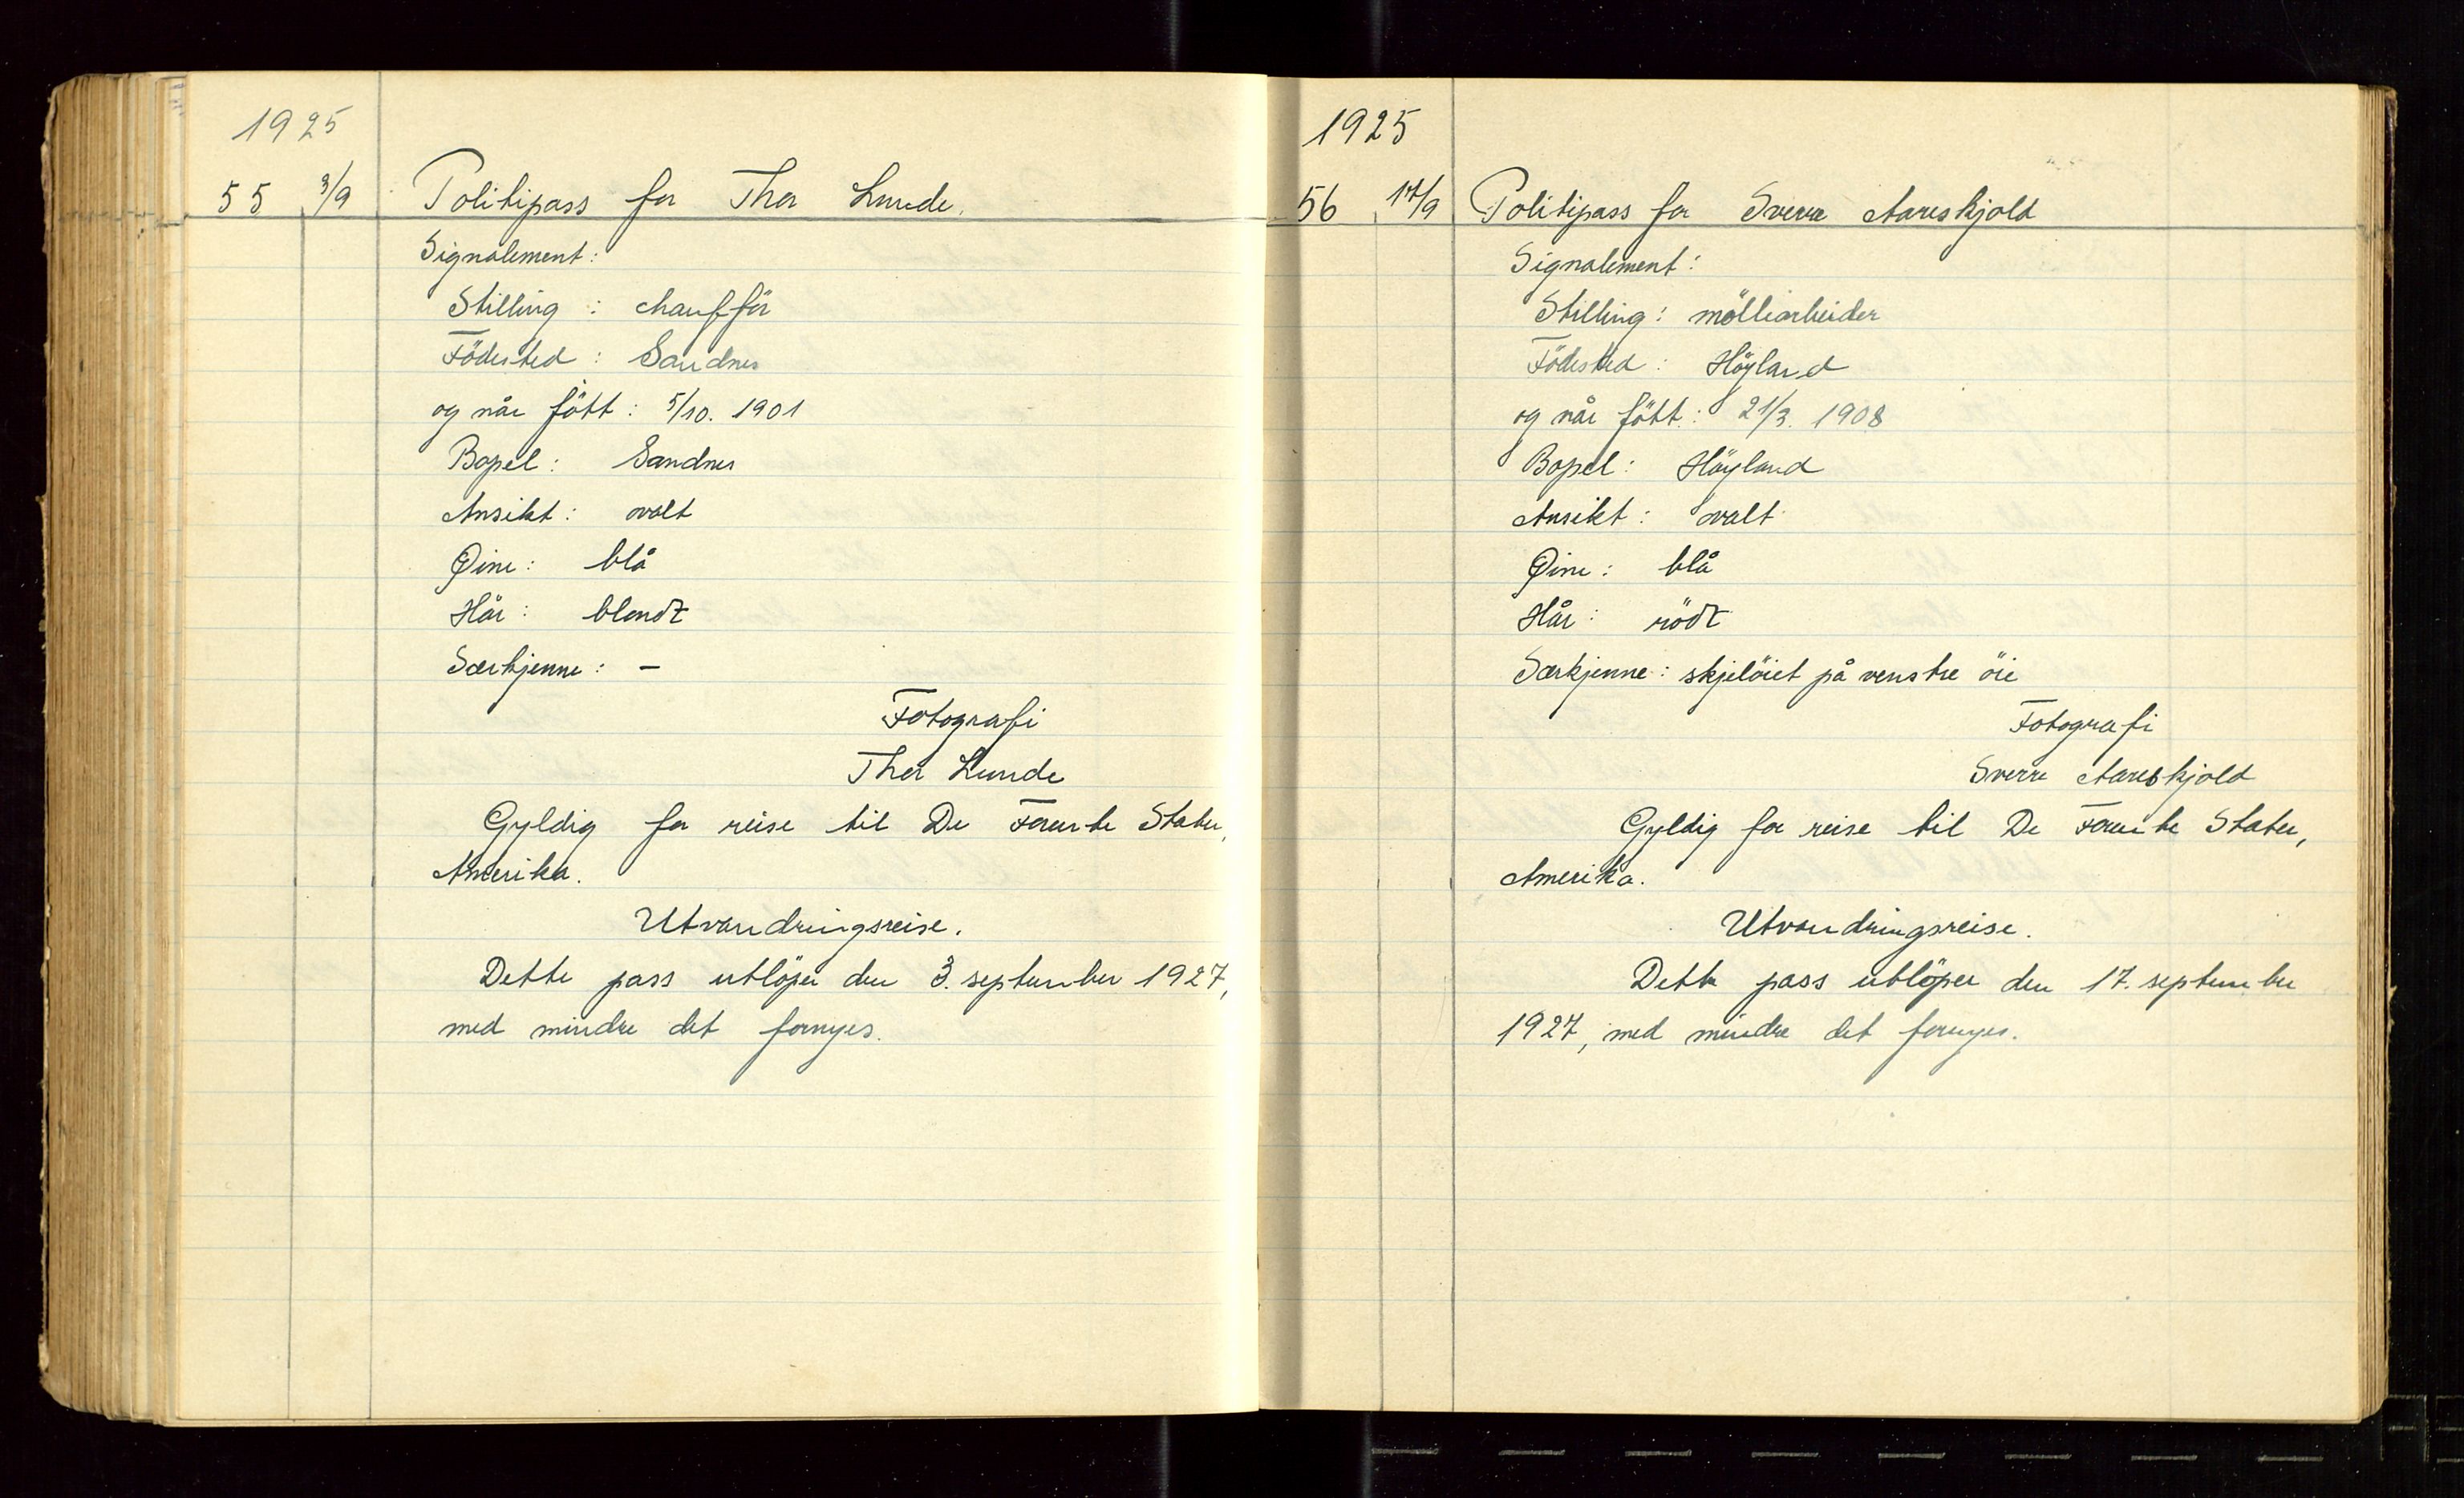 1925
55 3/9 Politipass for Thor Lunde.
Signalement:
Stilling: chaufför
Födested: Sandnes
og når fött: 5/10. 1901
Bopel: Sandnes
Ansikt: ovalt
Øine: blå
Hår: blondt
Særkjenne: –
Fotografi
Thor Lunde
Gyldig for reise til De Forente Stater,
Amerika.
Utvandringsreise.
Dette pass utlöper den 3. september 1927,
med mindre det fornyes.
1925
56 17/9 Politipass for Sverre Aareskjold
Signalement:
Stilling: möllearbeider
Födested: Höyland
og når fött: 21/3. 1908
Bopel: Höyland
Ansikt: ovalt
Øine: blå
Hår: rödt
Særkjenne: skjelöiet på venstre öie
Fotografi
Sverre Aareskjold
Gyldig for reise til De Forente Stater,
Amerika.
Utvandringsreise.
Dette pass utlöper den 17. september
1927, med mindre det fornyes.